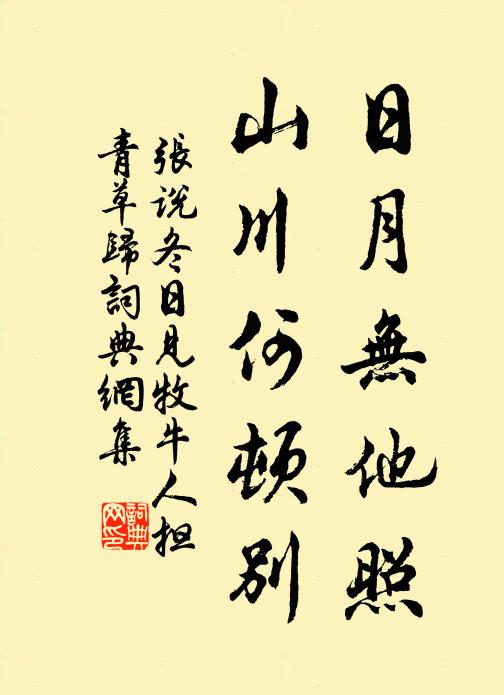 日月無他照
山川何頓別
張說冬日見牧牛人担
青草歸詞典網集
詞典
网印